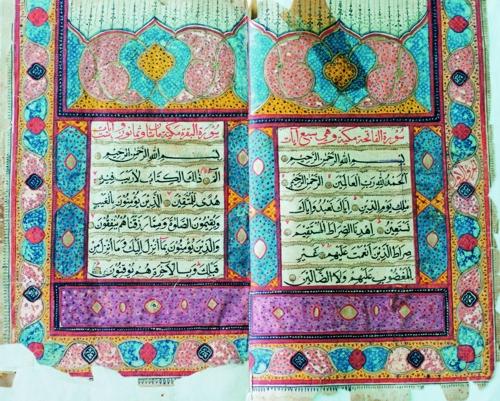 سورة الفاتحة مكية وهي سبع آيات
بسم الله الرحمن الرحيم
الحمد لله رب العالمين الرحمن الرحيم
ملك يوم الدين اياك نعبد واياك
نستعين اهدنا الصراط المستقيم
صراط الذين انعمت عليهم غير
المغضوب عليهم ولا الضالين
سورة البقرة مكية مائتا وثمانون آيات
بسم الله الرحمن الرحيم
الم ذلك الكتاب لا ريب فيه
هدى للمتقين الذين يؤمنون بالغيب
ويقيمون الصلوة ومما رزقناهم ينفقون
والذين يؤمنون بما انزل اليك وما انزل من
قبلك وبالاخرة هم يوقنون